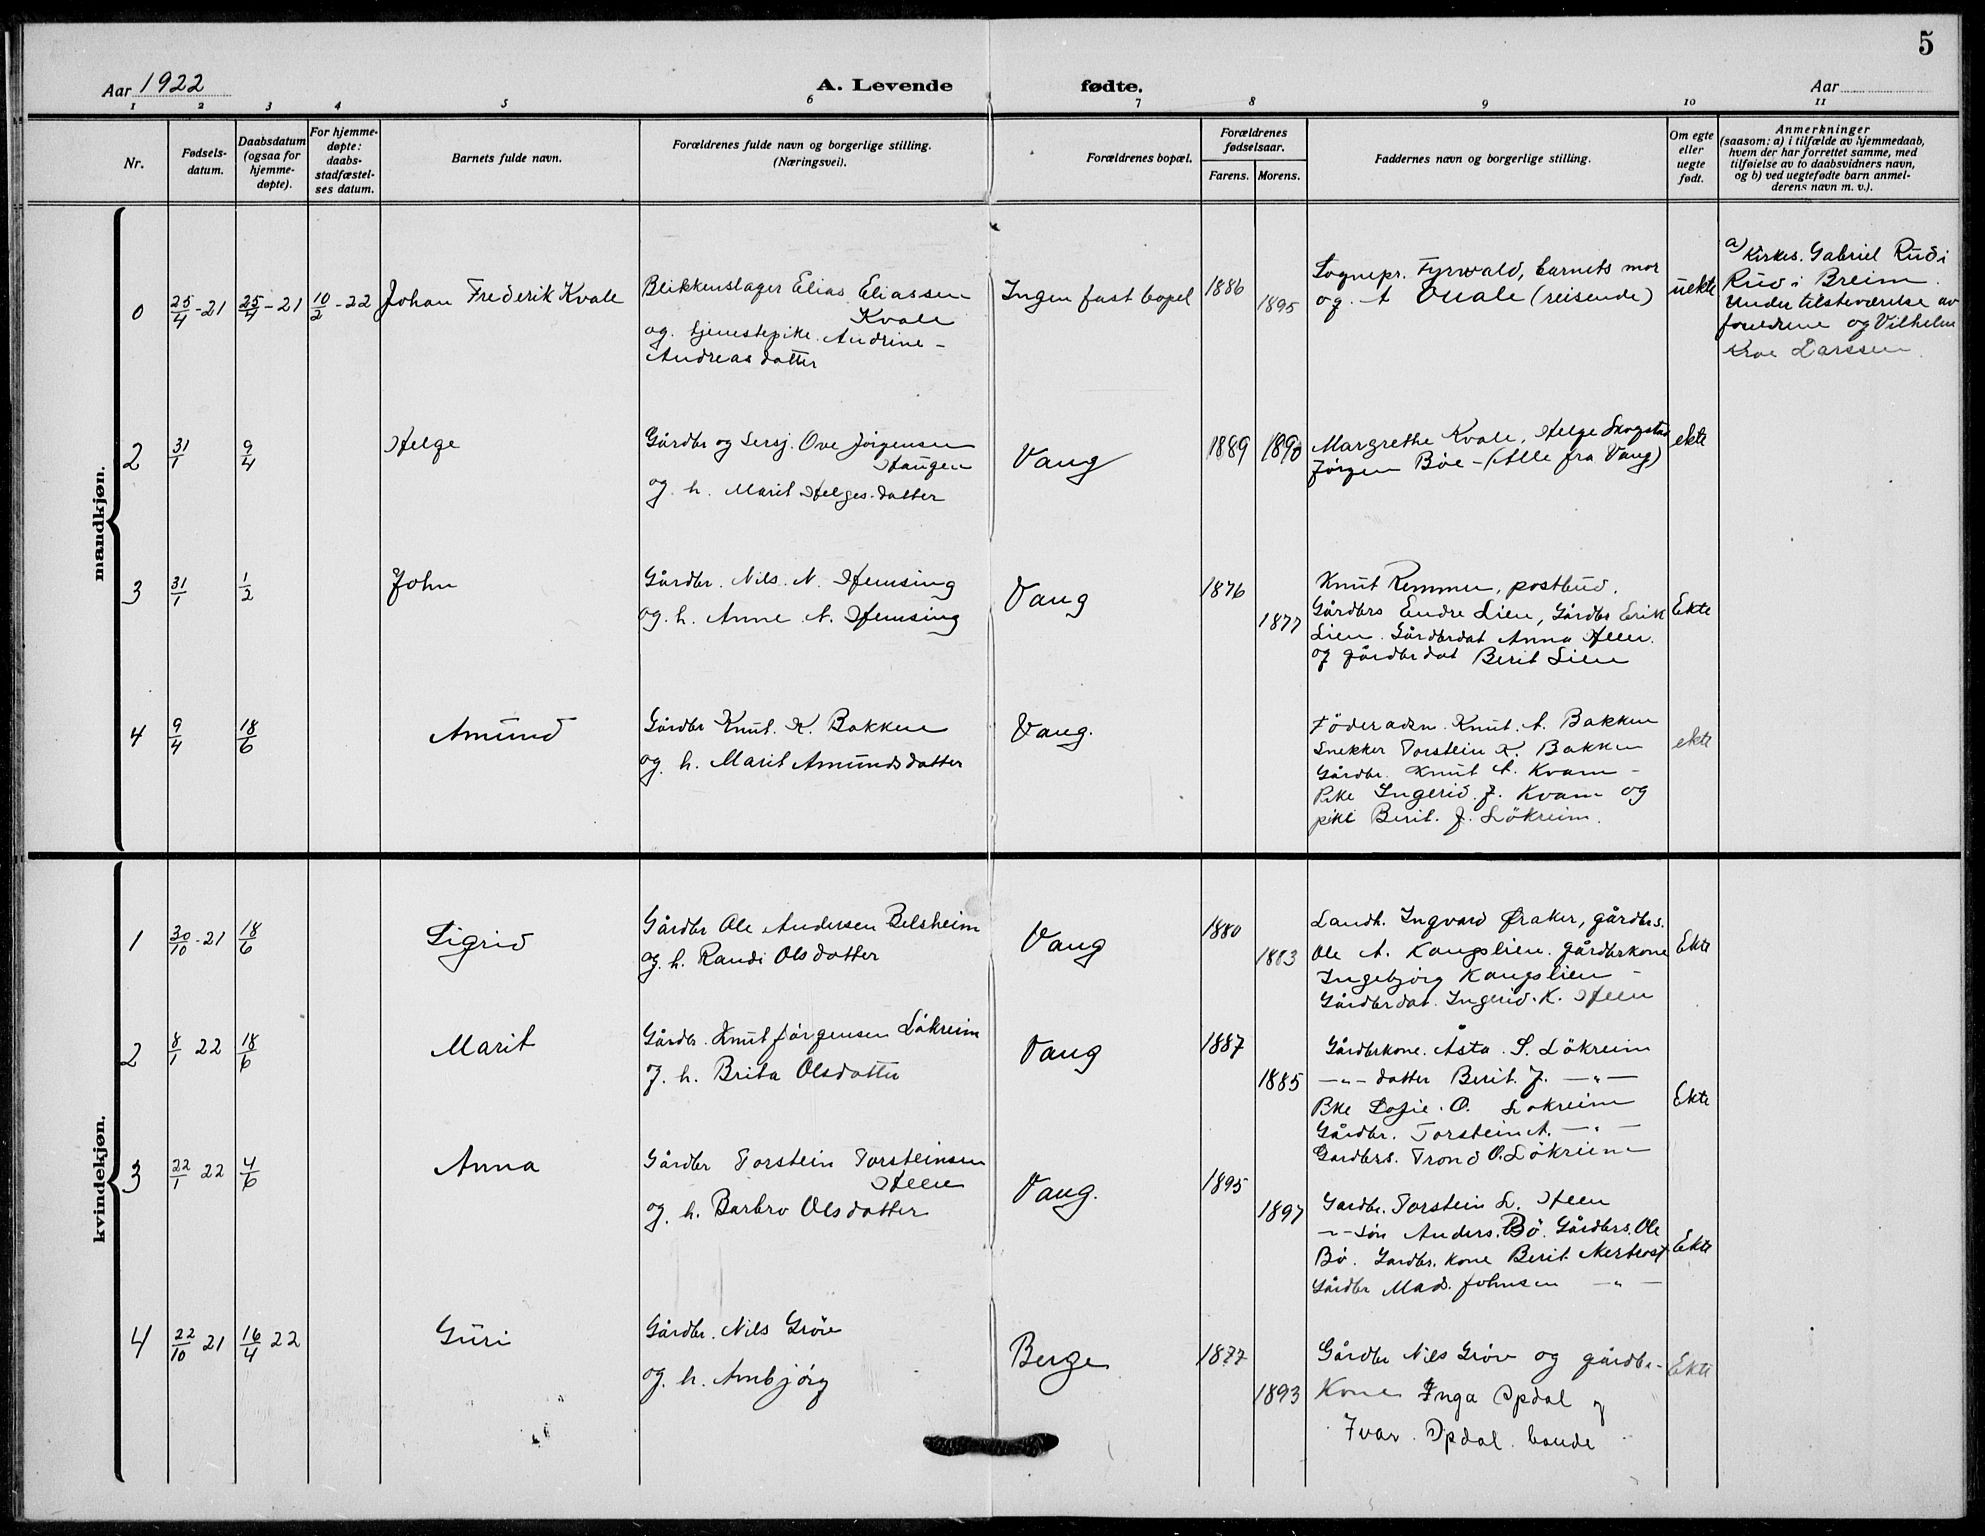 5
Aar 1922 A. Levende fødte. Aar
1 2 3 4 5 6 7 8 9 10 11
Nr.
Fødsels-
datum.
Daabsdatum
(ogsaa for
hjemme-
døpte).
For hjemme-
døpte:
daabs-
stadfæstel-
ses datum.
Barnets fulde navn.
Forældrenes fulde navn og borgerlige stilling.
(Næringsvei).
Forældrenes bopæl.
Forældrenes
fødselsaar.
Farens. Morens.
Faddernes navn og borgerlige stilling.
Om egte
eller
uegte
født.
Anmerkninger
(saasom: a) i tilfælde av hjemmedaab,
hvem der har forrettet samme, med
tilføielse av to daabsvidners navn,
og b) ved uegtefødte barn anmel-
derens navn m. v.).
mandkjøn.
0 25/4-21 25/4-21 10/2-22 Johan Frederik Kvale
Blikkenslager Elias Eliassen
Kvale
og tjenestepike Andrine-
Andreasdatter
Ingen fast bopel
1886
1895
Sognepr. Fyrwald, barnets mor
og (reisende)
uekte
a) Kirkes. Gabriel Rudi
Rud i Breim.
Under tilsteværelse av
foreldrene og Vilhelm
Larssen.
2 31/1 9/4 Helge
Gårdbr og Sersj. Ove Jörgensen
Haugen
og h. Marit Helges.datter
Vang
1889 1890
Margrethe Kvale, Helge Skogstad
Jörgen Böe - (Alle fra Vang)
ekte
3 31/1 1/2 John
Gårdbr. Nils. N. Hemsing
og. h. Anne A. Hemsing
Vang
1876
1877
Knut Remmen, postbud.
Gårdbrs Endre Lien, Gårdbs Erik
Lien. Gårdbrdat Anna Heen.
og gårdbrdat Berit Lien
Ekte
4 9/4 18/6 Amund
Gårdbr Knut. K. Bakken
og h. Marit Amundsdatter
Vang.
Föderådsm. Knut. A. Bakken
Snekker Torstein K. Bakken
Gårdbr. Knut A. Kvam -
Pike Ingerid J. Kvam og
pike Berit. J. Lökreim.
ekte
kvindekjøn.
1 30/10-21 18/6 Sigrid
Gårdbr Ole Andersen Belsheim
og. h. Randi Olsdatter
Vang
1880
1883
Landh. Ingvard Øraker, gårdbrs.
Ole A. Kangslien. gårdbrkone
Ingebjörg Kangslien -
Gårdbrdat. Ingerid. K. Heen
Ekte
2 8/1 22 18/6 Marit
Gårdbr. Knut Jörgensen Lökreim
og. h. Brita Olsdatter
Vang
1887
1885
Gårdbrkone. Åsta. S. Lökreim
-"- datter Berit. J. -"-
Pike Sofie. O. Lökreim
Gårdbr. Torstein A. -"-
Gardbrs. Trond O. Lökreim
Ekte
3 22/1 22 4/6 Anna
Gårdbr Torstein Torsteinsen
Heen
og. h. Barbro Olsdatter
Vang.
1895
1897
Gardbr. Torstein L. Heen
-"- Sön Anders. Bö. Gårdbrs. Ole
Bö. Gardbr. kone Berit Nertrost
Gårdbr Mads Johnsen -"-
Ekte
4 22/10 21 16/4 22 Guri
Gårdbr. Nils Gröv
og. h. Ambjörg
Berge
1877
1893
Gårdbr Nils Gröv og gårdbr-
Kone Inga Opdal og
Ivar. Opdal. bonde
Ekte